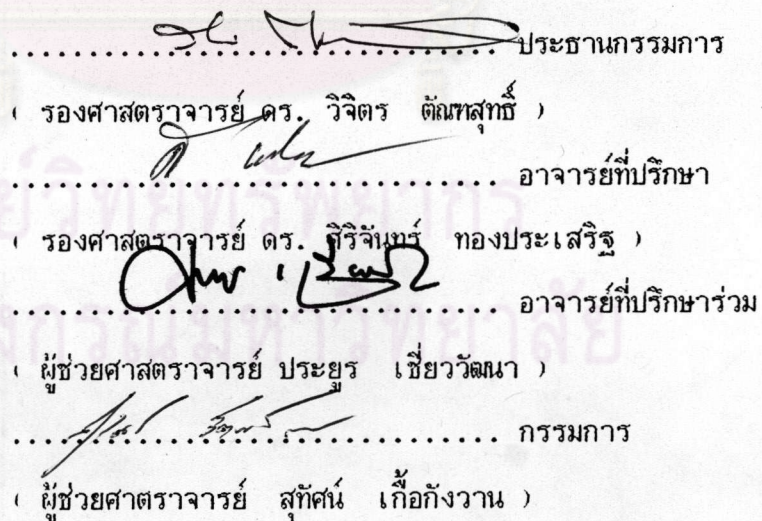 ........................................ ประธานกรรมการ
( รองศาสตราจารย์ ดร. วิจิตร ตัณฑสุทธิ์ )
........................................ อาจารย์ที่ปรึกษา
( รองศาสตราจารย์ ดร. ศิริจันทร์ ทองประเสริฐ )
........................................ อาจารย์ที่ปรึกษาร่วม
( ผู้ช่วยศาสตราจารย์ ประยูร เชี่ยววัฒนา )
........................................ กรรมการ
( ผู้ช่วยศาตราจารย์ สุทัศน์ เกื้อกังวาน )